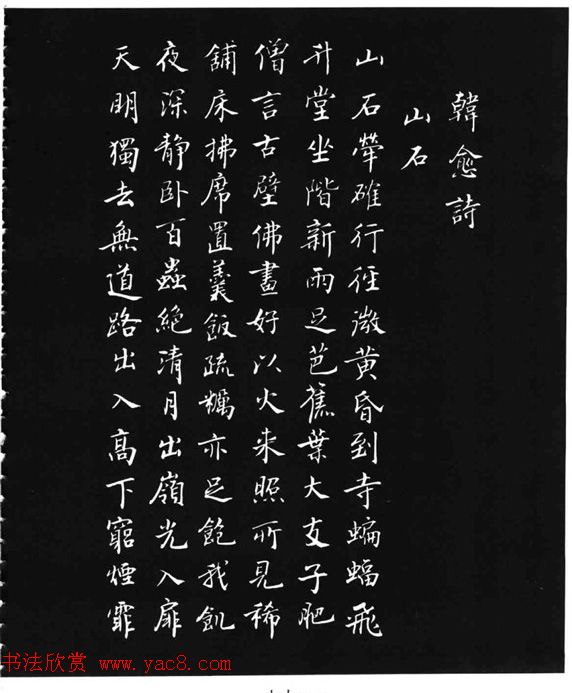 韓愈詩
山石
山石犖确行徑微黃昏到寺蝙蝠飛
升堂坐階新雨足芭蕉葉大支子肥
僧言古壁佛畫好以火來照所見稀
舖床拂席置羹飯疏糲亦足飽我飢
夜深靜臥百蟲絕清月出嶺光入扉
天明獨去無道路出入高下窮煙霏
书法欣赏 www.yac8.com